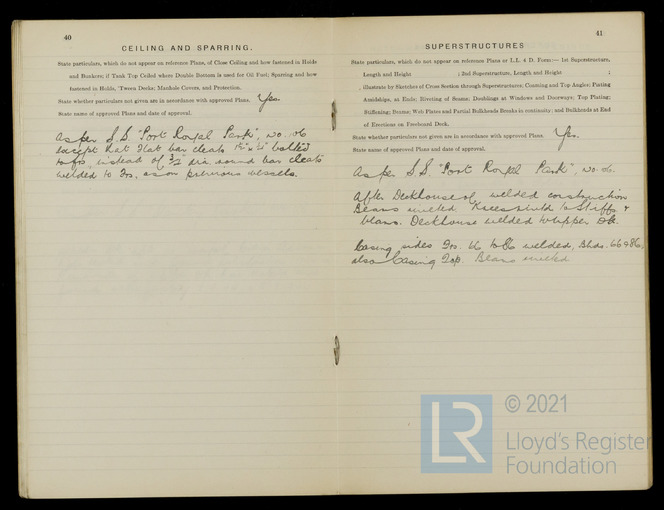 40
CEILING AND SPARRING.
State particulars, which do not appear on reference Plans, of Close Ceiling and how fastened in Holds
and Bunkers; if Tank Top Ceiled where Double Bottom is used for Oil Fuel; Sparring and how
fastened in Holds, 'Tween Decks; Manhole Covers, and Protection.
State whether particulars not given are in accordance with approved Plans. Yes.
State name of approved Plans and date of approval.
As per S.S. "Port Royal Park", No. 106
except that flat bar cleats bolted
to frs, instead of 1/2" dia. round bar cleats
welded to frs, as on previous vessels.
41
SUPERSTRUCTURES
State particulars, which do not appear on reference Plans or L.L. 4 D. Form:— 1st Superstructure,
Length and Height ; 2nd Superstructure, Length and Height ;
, illustrate by Sketches of Cross Section through Superstructures; Coaming and Top Angles; Plating
Amidships, at Ends; Riveting of Seams; Doublings at Windows and Doorways; Top Plating;
Stiffening; Beams; Web Plates and Partial Bulkheads Breaks in continuity; and Bulkheads at End
of Erections on Freeboard Deck.
State whether particulars not given are in accordance with approved Plans. Yes.
State name of approved Plans and date of approval.
As per S.S. "Port Royal Park", No. 106.
After Deckhouse of welded construction
Beams riveted. Knees riveted to Stiffs &
beams. Deckhouse welded to upper Dk.
Casing sides Frs. 66 to 86 welded, Bhds. 66 & 86,
also Casing Top. Beams riveted
© 2021
LR
Lloyd's Register
Foundation